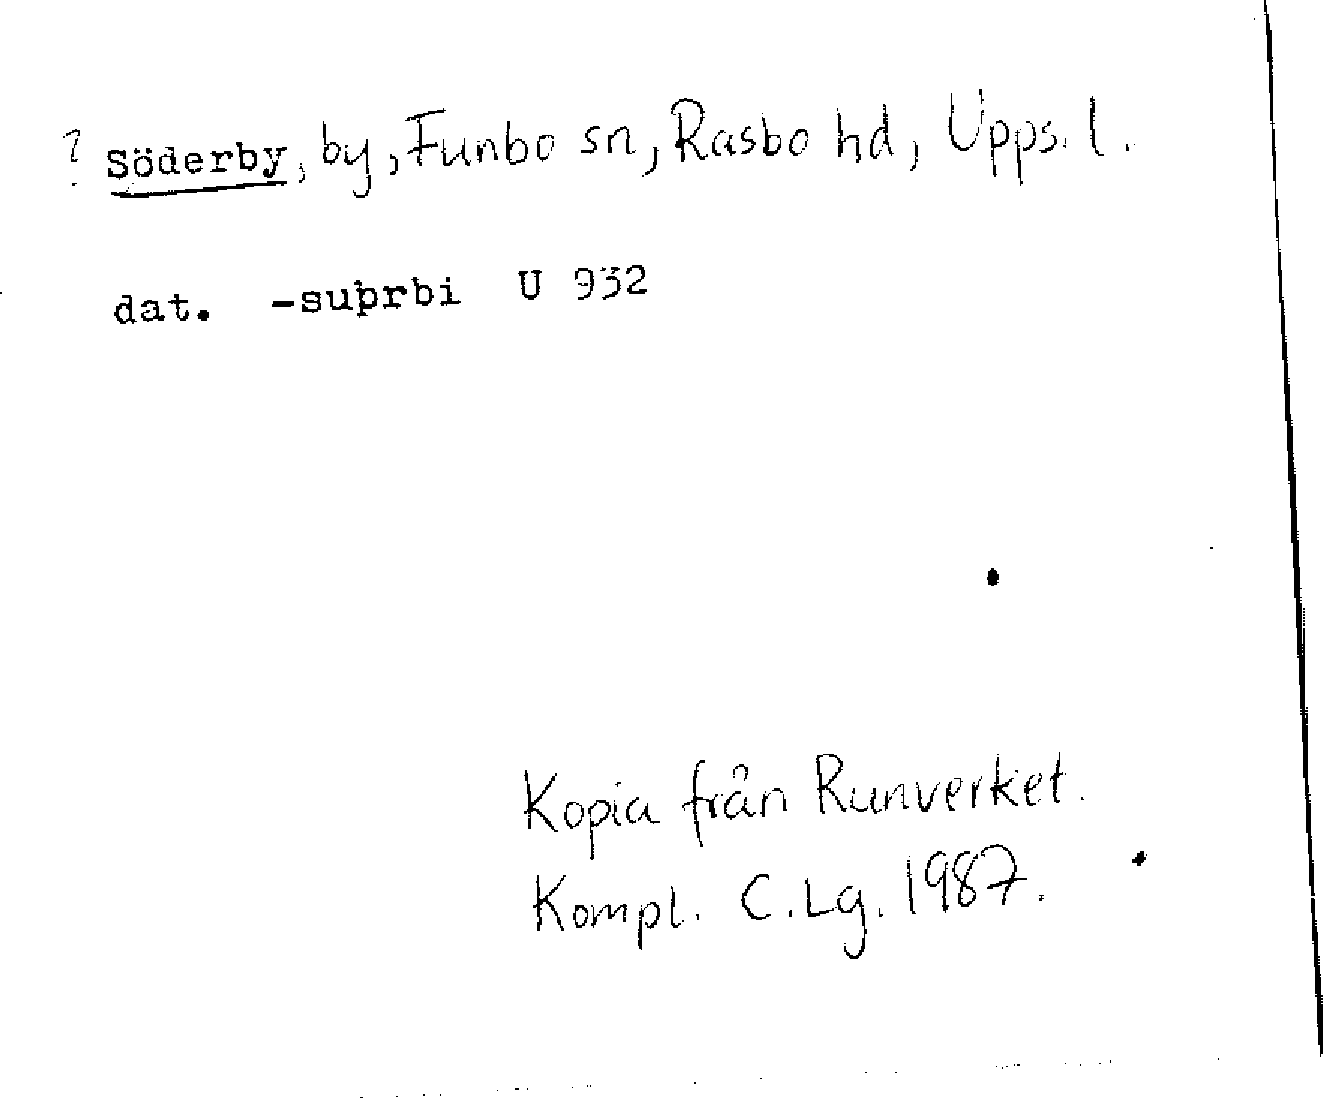 ? Söderby, by, Funbo sn, Rasbo hd, Upps. l.
dat. -suþrbi U 932
Kopia från Runverket.
Kompl. C.Lg. 1987.